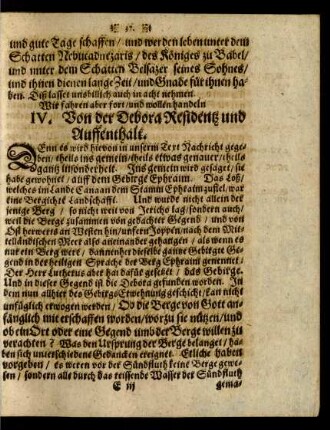 17.
und gute Tage schaffen / und werden leben unter dem
Schatten Nebucadnezaris / des Königes zu Babel/
und unter dem Schatten Belsazer seines Sohnes/
und ihnen dienen lange Zeit / und Gnade für ihnen ha-
ben. Diß lasset uns billich auch in acht nehmen.
Wir fahren aber fort / und wollen handeln
IV. Von der Debora Residentz und
Auffenthalt.
DEnn es wird hievon in unserm Text Nachricht gege-
ben / theils ins gemein / theils etwas genauer / theils
gantz insonderheit. Ins gemein wird gesaget / sie
habe gewohnet / auff dem Gebirge Ephraim. Das Loß/
welches im Lande Canaan dem Stamm Ephraim zufiel, war
eine Bergichte Landschafft. Und wurde nicht allein der
jenige Berg / so nicht weit von Jericho lag / sondern auch /
weil die Berge zusammen von gedachter Gegend / und von
Ost herwerts an Westen hin / unfern Joppen / nach dem Mit-
telländischen Meer also aneinander gehangen / als wenn es
nur ein Berg were / dannenher dieselbe gantze Gebirgte Ge-
gend in der heiliger Sprache der Berg Ephraim genennet.
Der Herr Lutherus aber hat dafür gesetzet / das Gebirge.
Und in dieser Gegend ist die Debora gefunden worden. In
dem nun allhier des Gebirgs Erwehnung geschicht / kan nicht
unfüglich erwogen werden / Ob die Berge von Gott an-
fänglich mit erschaffen worden / wor zu sie nützen / und
ob ein Ort oder eine Gegend umb der Berge willen zu
verachten? Was den Ursprung der Berge belanget / ha-
ben sich unterschiedene Gedancken ereignet. Etliche haben
vorgeben / es weren vor der Sündfluth keine Berge gewe-
sen / sondern alle durch das reissende Wasser der Sündfluth
E iij gema-